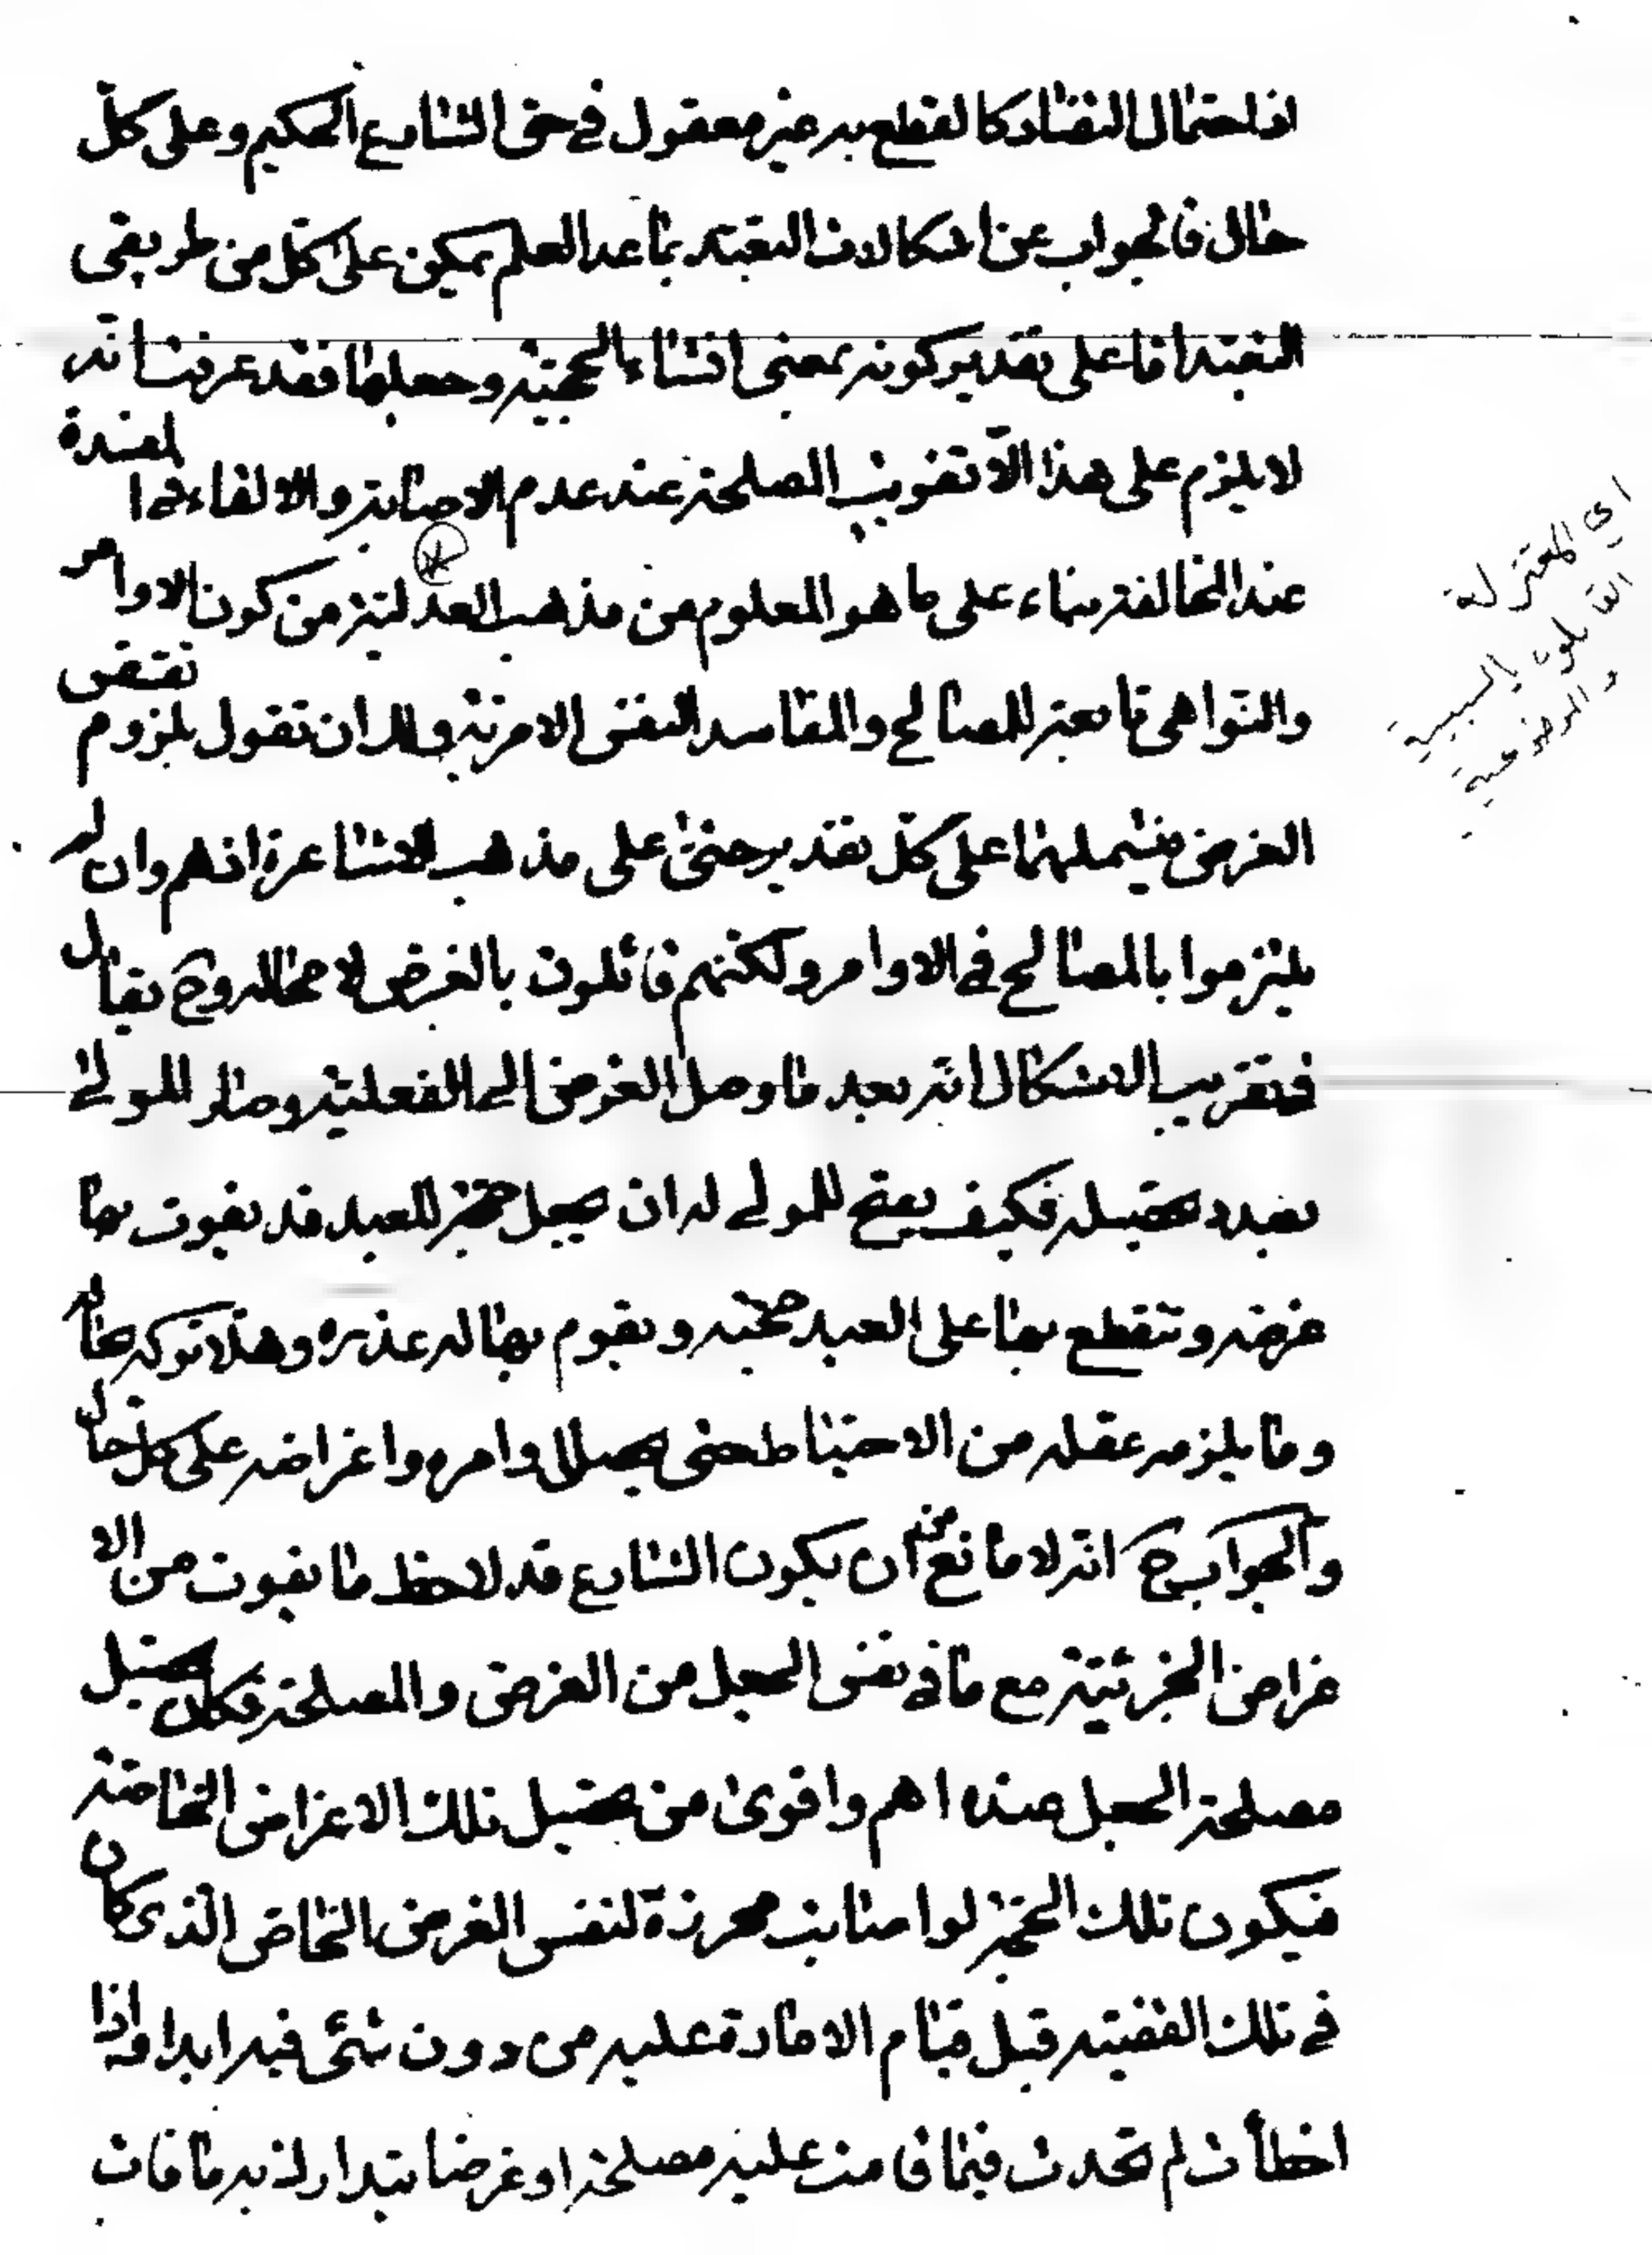 اذ احتمال التضاد كالقطع به غير معقول في حق الشارع الحكيم وعلى كل
حال فالجواب عن اشكالات التعبد بما عدا العلم يمكن على كل من طريقي
التعبد اما على تقدير كونه بمعنى انشاء الحجية وجعلها فقد عرفت انه
لا يلزم على هذا الا تفويت المصلحة عند عدم الاصابة والالقاء في المفسدة
عند المخالفة بناء على ما هو المعلوم من مذهب العدلية من كون الاوامر
والنواهي تابعة للمصالح والمفاسد النفس الامرية ولك ان تقول بلزوم تفويت
الغرض فيشملهما على كل تقدير حتى على مذهب الاشاعرة اذ هم وان لم
يلتزموا بالمصالح في الاوامر ولكنهم قائلون بالغرض لا محالة وح يقال
في تقريب الاشكال انه بعد ما وصل الغرض الى الفعلية وصار المولى
بصدد تحصيله فكيف يصح للمولى له ان يجعل حجة للعبد قد يفوت بها
غرضه وتنقطع بها على العبد حجته ويقوم بها له عذره وهلا تركه
وما يلزمه عقله من الاحتياط حتى يحصل اوامره واغراضه على كل حال
والجواب ح انه لا مانع من ان يكون الشارع قد لاحظ ما يفوت من الا
غراض الجزئية مع ما في نفس الجعل من الغرض والمصلحة فكان تحصيل
مصلحة الجعل عنده اهم واقوى من تحصيل تلك الاغراض الخاصة
فيكون تلك الحجة لو اصابت محرزة لنفس الغرض الخاص الذي كان
في تلك القضية قبل قيام الامارة عليه من دون شئ فيه ابدا واذا
اخطأت لم تحدث فيما قامت عليه مصلحة او غرضا يتدارك به ما فات
اي المعتزلة
القائلون بالسببية
و الموضوعية